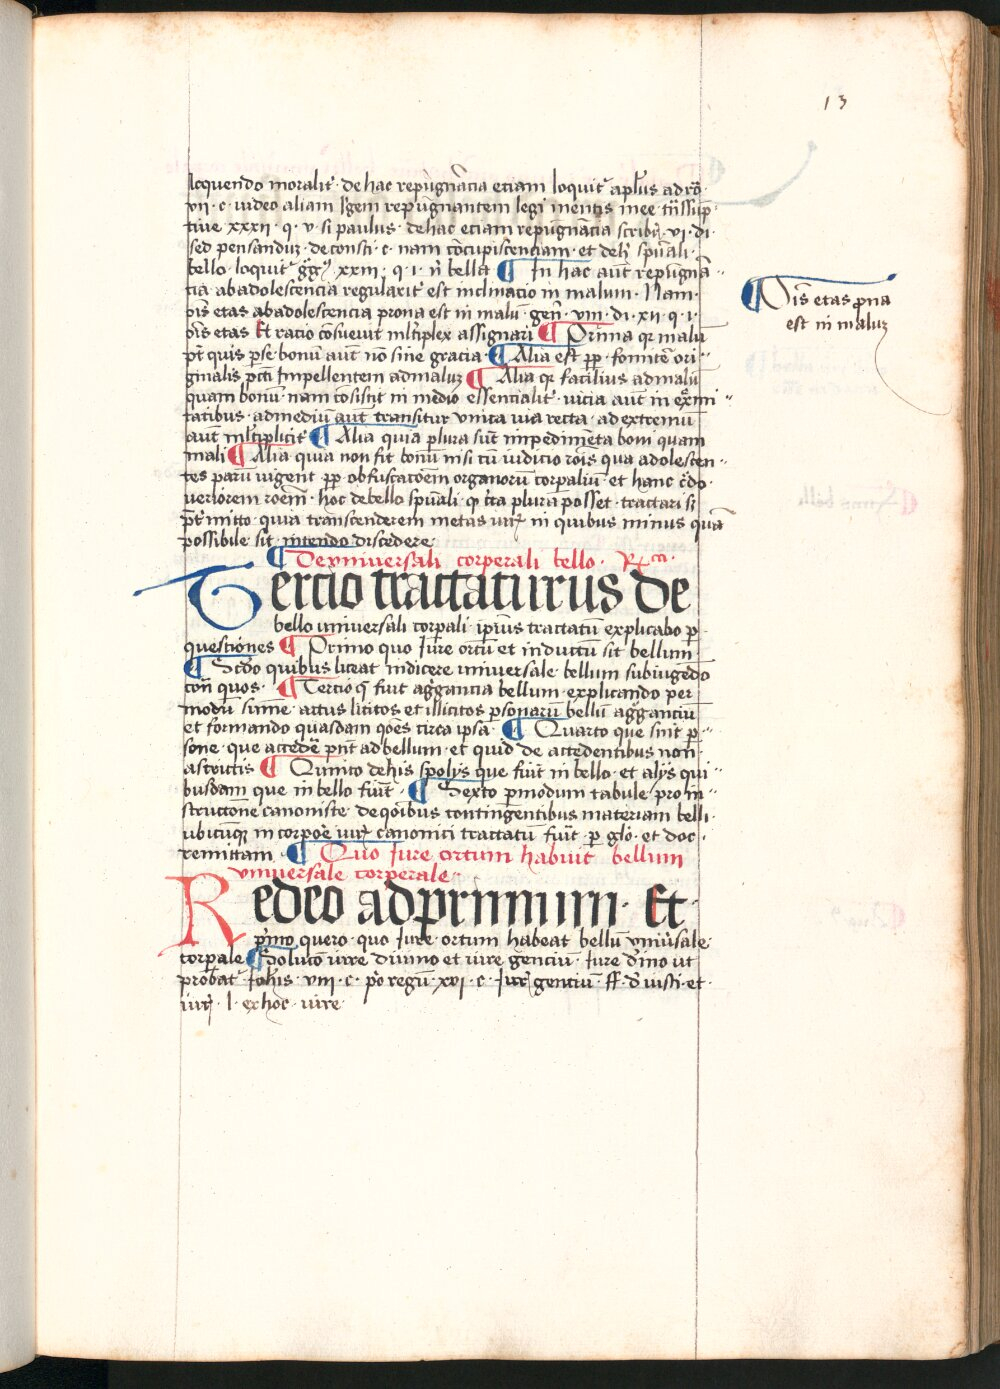 13
loquendo moralit̉ · de hac repugnãcia eciam loquit̉ apl̃us ad ro ·
vii · c · video aliam lgem repugnantem legi mentis mee
tiue xxxii · q · v · si paulus · de hac eciam repugnãcia scribit̉ vi · di ·
sed pensanduz · de consti · c · nam cõcupiscenciam · et de spũali ·
bello · loquit̉ xxiii · q · i · n̉ bella ¶ In hac aũt repugnã
cia ab adolescencia regularit̉ est inclinacio in malum · Nam ·
oĩs etas ab adolescencia prona est in malũ · gen̉ · viii · di · xii · q · i ·
oĩs etas Et racio cõsueuit ml̃tiplex assignari ¶ Prima qr malũ
põt quis p se bonũ aũt nõ sine gracia · ¶ Alia est pp̃ · fomitẽ ori
ginalis pcc̃ti Impellentem ad maluz ¶ Alia qr facilius ad malũ
quam bonũ nam cõsistit in medio essencialit̉ · vicia aũt in extrmi
tatibus · ad mediũ aũt transitur vnica via recta · ad extremũ
aũt ml̃tiplicit̉ ¶ Alia quia plura sũt impedimẽta boni quam
mali ¶ Alia quia non fit bonũ nisi cũ iudicio rõis qua adolescen
tes parũ vigent pp̃ obfuscacõem organorũ corpaliũ · et hanc c̃do
veriorem rõem̃ · hoc de bello spũali · q̃ c̃ca plura posset · tractari
mitto · quia transcenderem metas in quibus minus quã
possibile sit intendo discedere
¶ De vniuersali corperali bello ·
Tercio tractaturus de
bello vniuersali corpali · ip̃ius tractatũ explicabo p
questiones ¶ Primo quo Jure ortũ et inductũ sit bellum
¶ Scdo quibus liceat indicere vniuersale · bellum subiugẽdo
cont̉ quos · ¶ Tercio q̃ fiũt aggrancia bellum · explicando per
modũ sũme · actus licitos et illicitos psonarũ bellũ aggranciũ
et formando quasdam qões circa ipsa ¶ Quarto que sint p
sone · que accedẽ pñt ad bellum · et quid de accedentibus non
ascriptis ¶ Quinto de his spolys que fiũt in bello · et alys qui
busdam que in bello fiũt · ¶ Sexto p modum tabule pro in
structione canoniste · de qõibus contingentibus materiam belli
ubicũq̃ in corpore canonici tractatũ fiũt p glo · et doc ·
remittam · ¶ Quo Jure ortum habuit bellum
vniuersale corperale
Redeo ad primum · Et
p̃mo quero · quo Jure ortum habeat bellũ vniũsale
corpale ¶ Solucõ iure diuino et iure genciũ · Jure d̃ino ut
probat̉ Johis · viii · c · p̉o regũ xvi · c · Jure genciũ ff · d̉ iusti · et ·
iur̉ · l · ex hoc · iure
¶ Oĩs etas pna
est in maluz